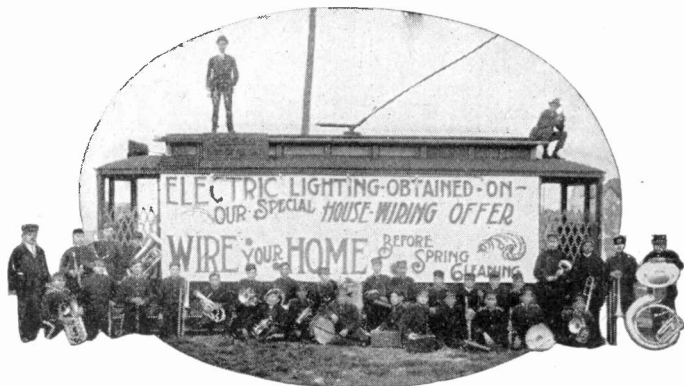 ELECTRIC LIGHTING-OBTAINED-ON-
OUR-SPECIAL HOUSE-WIRING OFFER
WIRE YOUR HOME BEFORE
SPRING
CLEANING